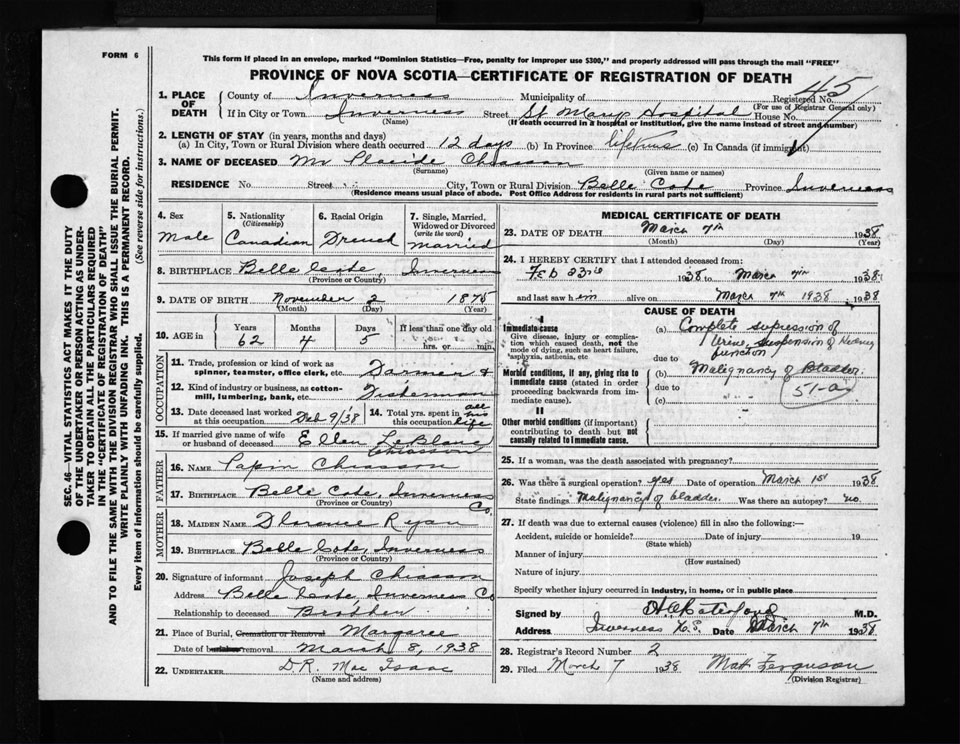 FORM 6
This form if placed in an envelope, marked "Dominion Statistics—Free, penalty for improper use $300," and properly addressed will pass through the mail "FREE"
PROVINCE OF NOVA SCOTIA—CERTIFICATE OF REGISTRATION OF DEATH
45
Registered No.
(For use of Registrar General only)
1. PLACE OF DEATH
County of Inverness Municipality of
If in City or Town Inverness Street St Marys Hospital House No.
(Name) (If death occurred in a hospital or institution, give the name instead of street and number)
2. LENGTH OF STAY (in years, months and days)
(a) In City, Town or Rural Division where death occurred 12 days (b) In Province lifetime (c) In Canada (if immigrant)
3. NAME OF DECEASED Mr Placide Chiasson
(Surname) (Given name or names)
RESIDENCE No. Street City, Town or Rural Division Belle Cote Province Inverness
(Residence means usual place of abode. Post Office Address for residents in rural parts not sufficient)
4. Sex Male
5. Nationality (Citizenship) Canadian
6. Racial Origin French
7. Single, Married, Widowed or Divorced (write the word) Married
8. BIRTHPLACE Belle Cote, Inverness
(Province or Country)
9. DATE OF BIRTH November 2 1875
(Month) (Day) (Year)
10. AGE in Years Months Days If less than one day old
62 4 5 hrs. or min.
OCCUPATION
11. Trade, profession or kind of work as spinner, teamster, office clerk, etc. Farmer &
12. Kind of industry or business, as cotton-mill, lumbering, bank, etc. Fisherman
13. Date deceased last worked at this occupation Feb 9/38
14. Total yrs. spent in this occupation all his life
15. If married give name of wife or husband of deceased Ellen LeBlanc Chiasson
FATHER
16. NAME Papin Chiasson
17. BIRTHPLACE Belle Cote, Inverness Co.
(Province or Country)
MOTHER
18. MAIDEN NAME Florence Ryan
19. BIRTHPLACE Belle Cote, Inverness
(Province or Country)
20. Signature of informant Joseph Chiasson
Address Belle Cote, Inverness Co
Relationship to deceased Brother
21. Place of Burial, Cremation or Removal Margaree
Date of burial or removal March 8, 1938
22. UNDERTAKER D.R. Mac Isaac
(Name and address)
MEDICAL CERTIFICATE OF DEATH
23. DATE OF DEATH March 7th 1938
(Month) (Day) (Year)
24. I HEREBY CERTIFY that I attended deceased from:
Feb 23rd 1938 to March 7th 1938
and last saw him alive on March 7th 1938 1938
CAUSE OF DEATH
I
Immediate cause
Give disease, injury or complication which caused death, not the mode of dying, such as heart failure, asphyxia, asthenia, etc
(a) Complete supression of Urine, Suspension of Kidney function
due to
Morbid conditions, if any, giving rise to immediate cause (stated in order proceeding backwards from immediate cause)
(b) Malignancy of Bladder.
due to
(c)
II
Other morbid conditions (if important) contributing to death but not causally related to immediate cause.
25. If a woman, was the death associated with pregnancy?
26. Was there a surgical operation? yes Date of operation March 1st 1938
State findings Malignancy of bladder. Was there an autopsy? no.
27. If death was due to external causes (violence) fill in also the following:—
Accident, suicide or homicide? Date of injury 19
(State which)
Manner of injury
(How sustained)
Nature of injury
Specify whether injury occurred in industry, in home, or in public place
Signed by M.D.
Address Inverness N.S. Date March 7th 1938
28. Registrar's Record Number 2
29. Filed March 7 1938 Matt Ferguson
(Division Registrar)
SEC. 46—VITAL STATISTICS ACT MAKES IT THE DUTY OF THE UNDERTAKER OR PERSON ACTING AS UNDERTAKER TO OBTAIN ALL THE PARTICULARS REQUIRED IN THE "CERTIFICATE OF REGISTRATION OF DEATH" AND TO FILE THE SAME WITH THE DIVISION REGISTRAR WHO SHALL ISSUE THE BURIAL PERMIT.
WRITE PLAINLY WITH UNFADING INK. THIS IS A PERMANENT RECORD.
Every item of information should be carefully supplied. (See reverse side for instructions.)